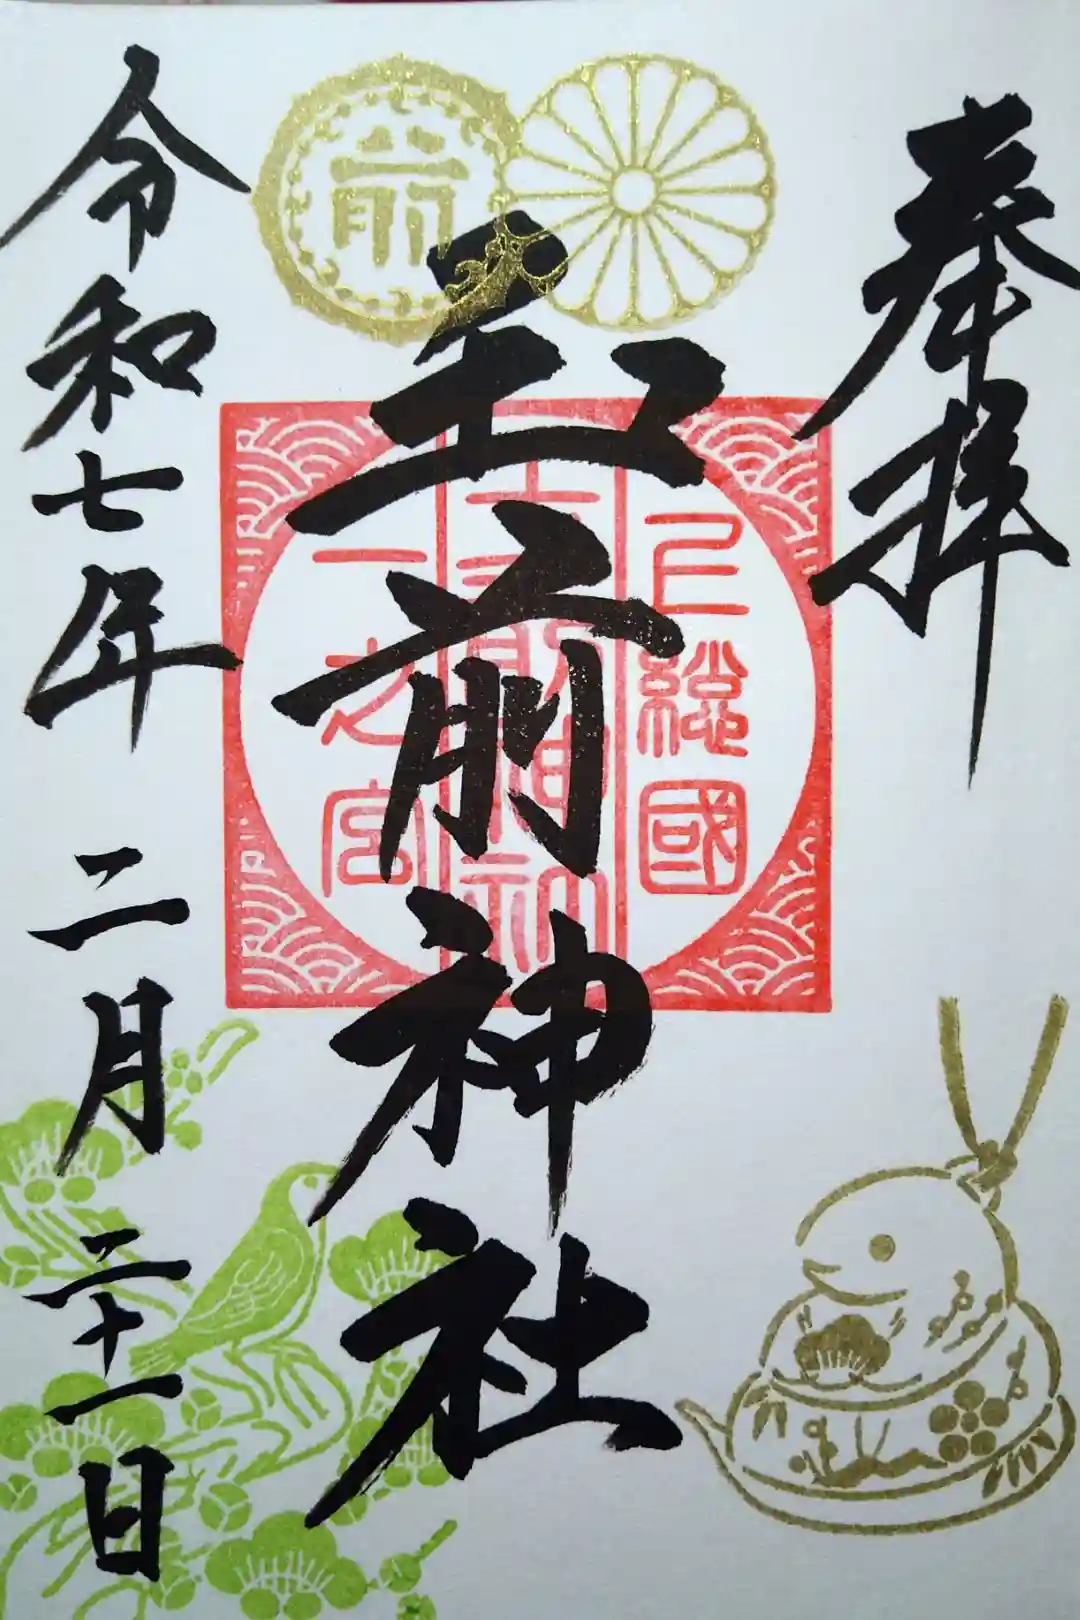 奉拝
玉前神社
令和七年二月二十一日
上總國
一之宮
前